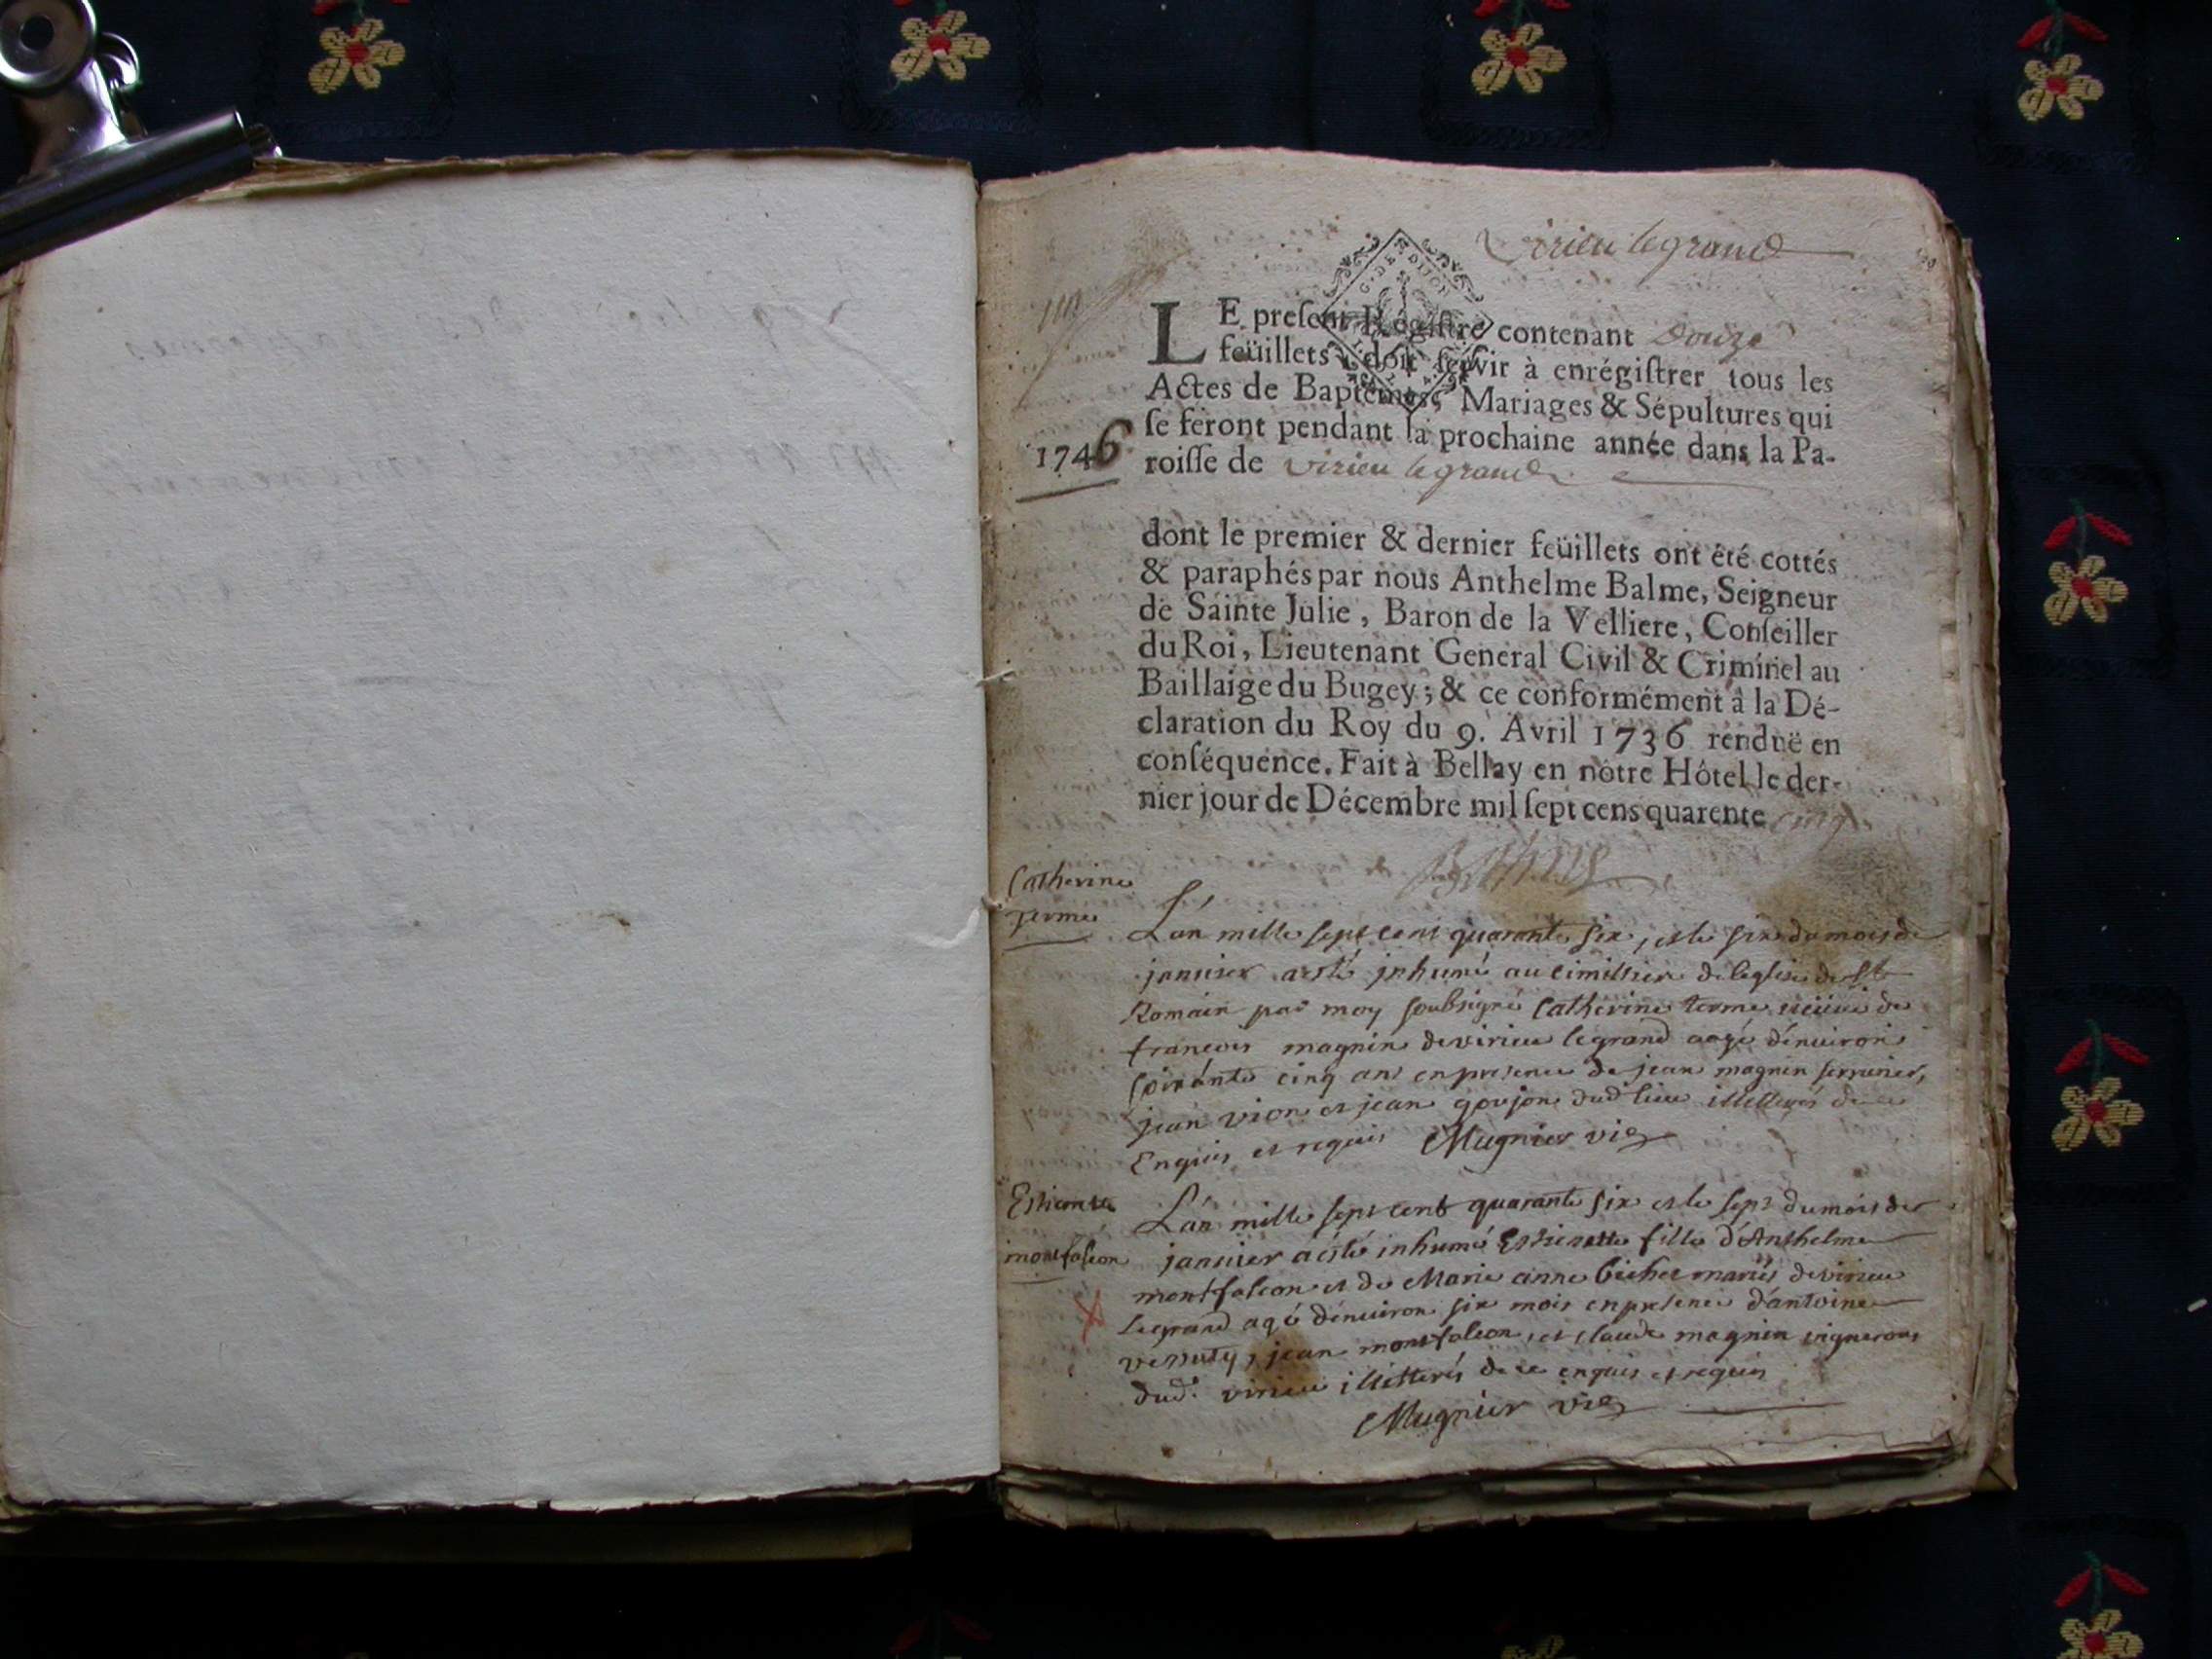 Virieu le grand
G. DE DIJON
LE present Registre contenant Douze
feüillets, doit servir à enrégistrer tous les
Actes de Baptêmes, Mariages & Sépultures qui
se feront pendant la prochaine année dans la Pa-
1746
roisse de Virieu le grand
dont le premier & dernier feüillets ont été cottés
& paraphés par nous Anthelme Balme, Seigneur
de Sainte Julie, Baron de la Velliere, Conseiller
du Roi, Lieutenant General Civil & Criminel au
Baillaige du Bugey; & ce conformément à la Dé-
claration du Roy du 9. Avril 1736 renduë en
conséquence. Fait à Bellay en nôtre Hôtel le der-
nier jour de Décembre mil sept cens quarente cinq
Catherine
terme
L'an mille sept cent quarante six, et le six du mois de
janvier a esté inhumé au cimittiere de leglise de St
Romain par moy soubsigné Catherine terme veüve de
francois magnin de virieu le grand aagé d'environ
soixante cinq ans en presence de jean magnin serrurier,
jean vion et jean goujon dud lieu illetterés de ce
Enquis et requis Mugnier vic
Estiennette
montfalcon
L'an mille sept cent quarante six et le sept du mois de
janvier a esté inhumé Estiennette fille d'Anthelme
montfalcon et de Marie anne bichet mariés de virieu
le grand agé d'environ six mois en presence d'antoine
jean montfalcon, et claude magnin vignerons
dud. virieu illitterés de ce enquis et requis
Mugnier vic